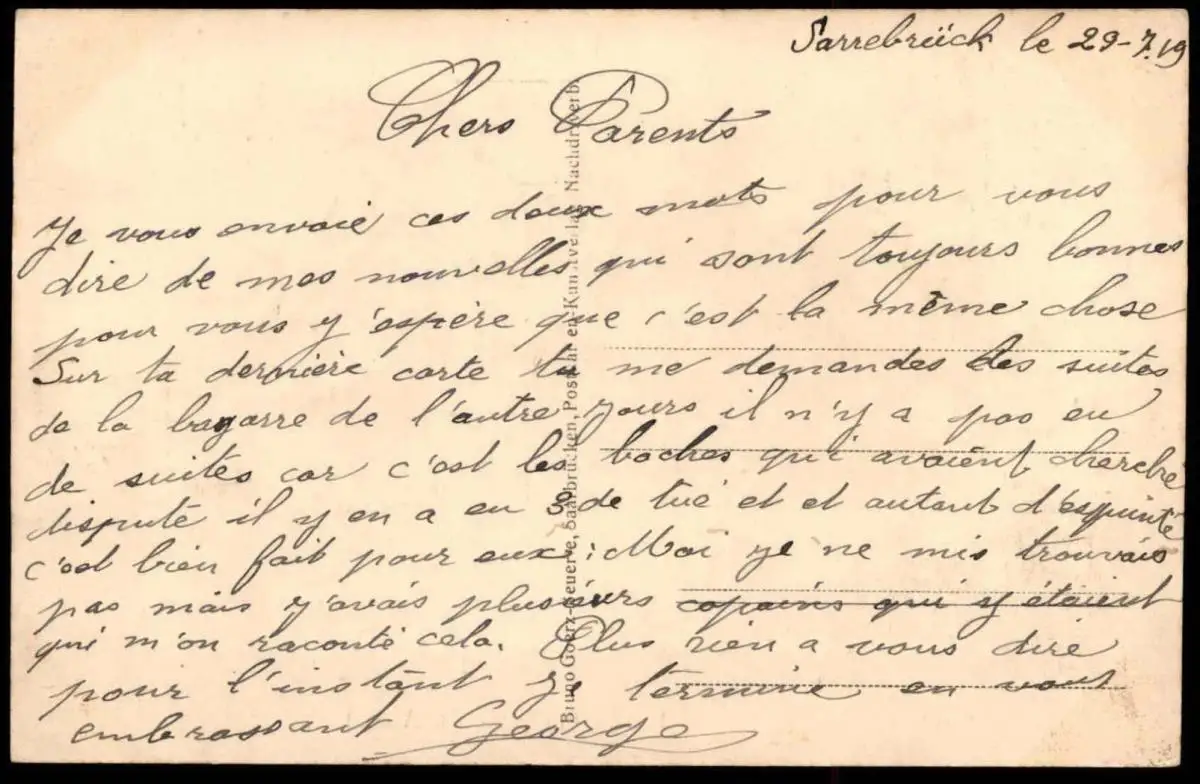 Sarrebrück le 29-7.19
Chers Parents
Je vous envoie ces deux mots pour vous
dire de mes nouvelles qui sont toujours bonnes
pour vous j'espère que c'est la même chose
Sur ta dernière carte tu me demandes des suites
de la bagarre de l'autre jours il n'y a pas eu
de suites car c'est les boches qui avaient cherché
dispute il y en a eu 3 de tué et et autant d'esquinté
c'est bien fait pour eux : Moi je ne mis trouvais
pas mais j'avais plusieurs copains qui y étaient
qui m'on raconté cela. Plus rien a vous dire
pour l'instant je termine en vous
embrassant George
Bruno Goerz-Neuerve, Saarbrücken, Postkarten Nachdr. verb.